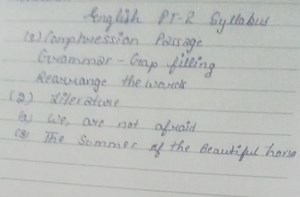 English PT-2 Syllabus
(1) Comphression Passage
Grammar - Gap filling
Rearrange the words
(2) Literature
(1) We are not afraid
(3) The Summer of the Beautiful horse